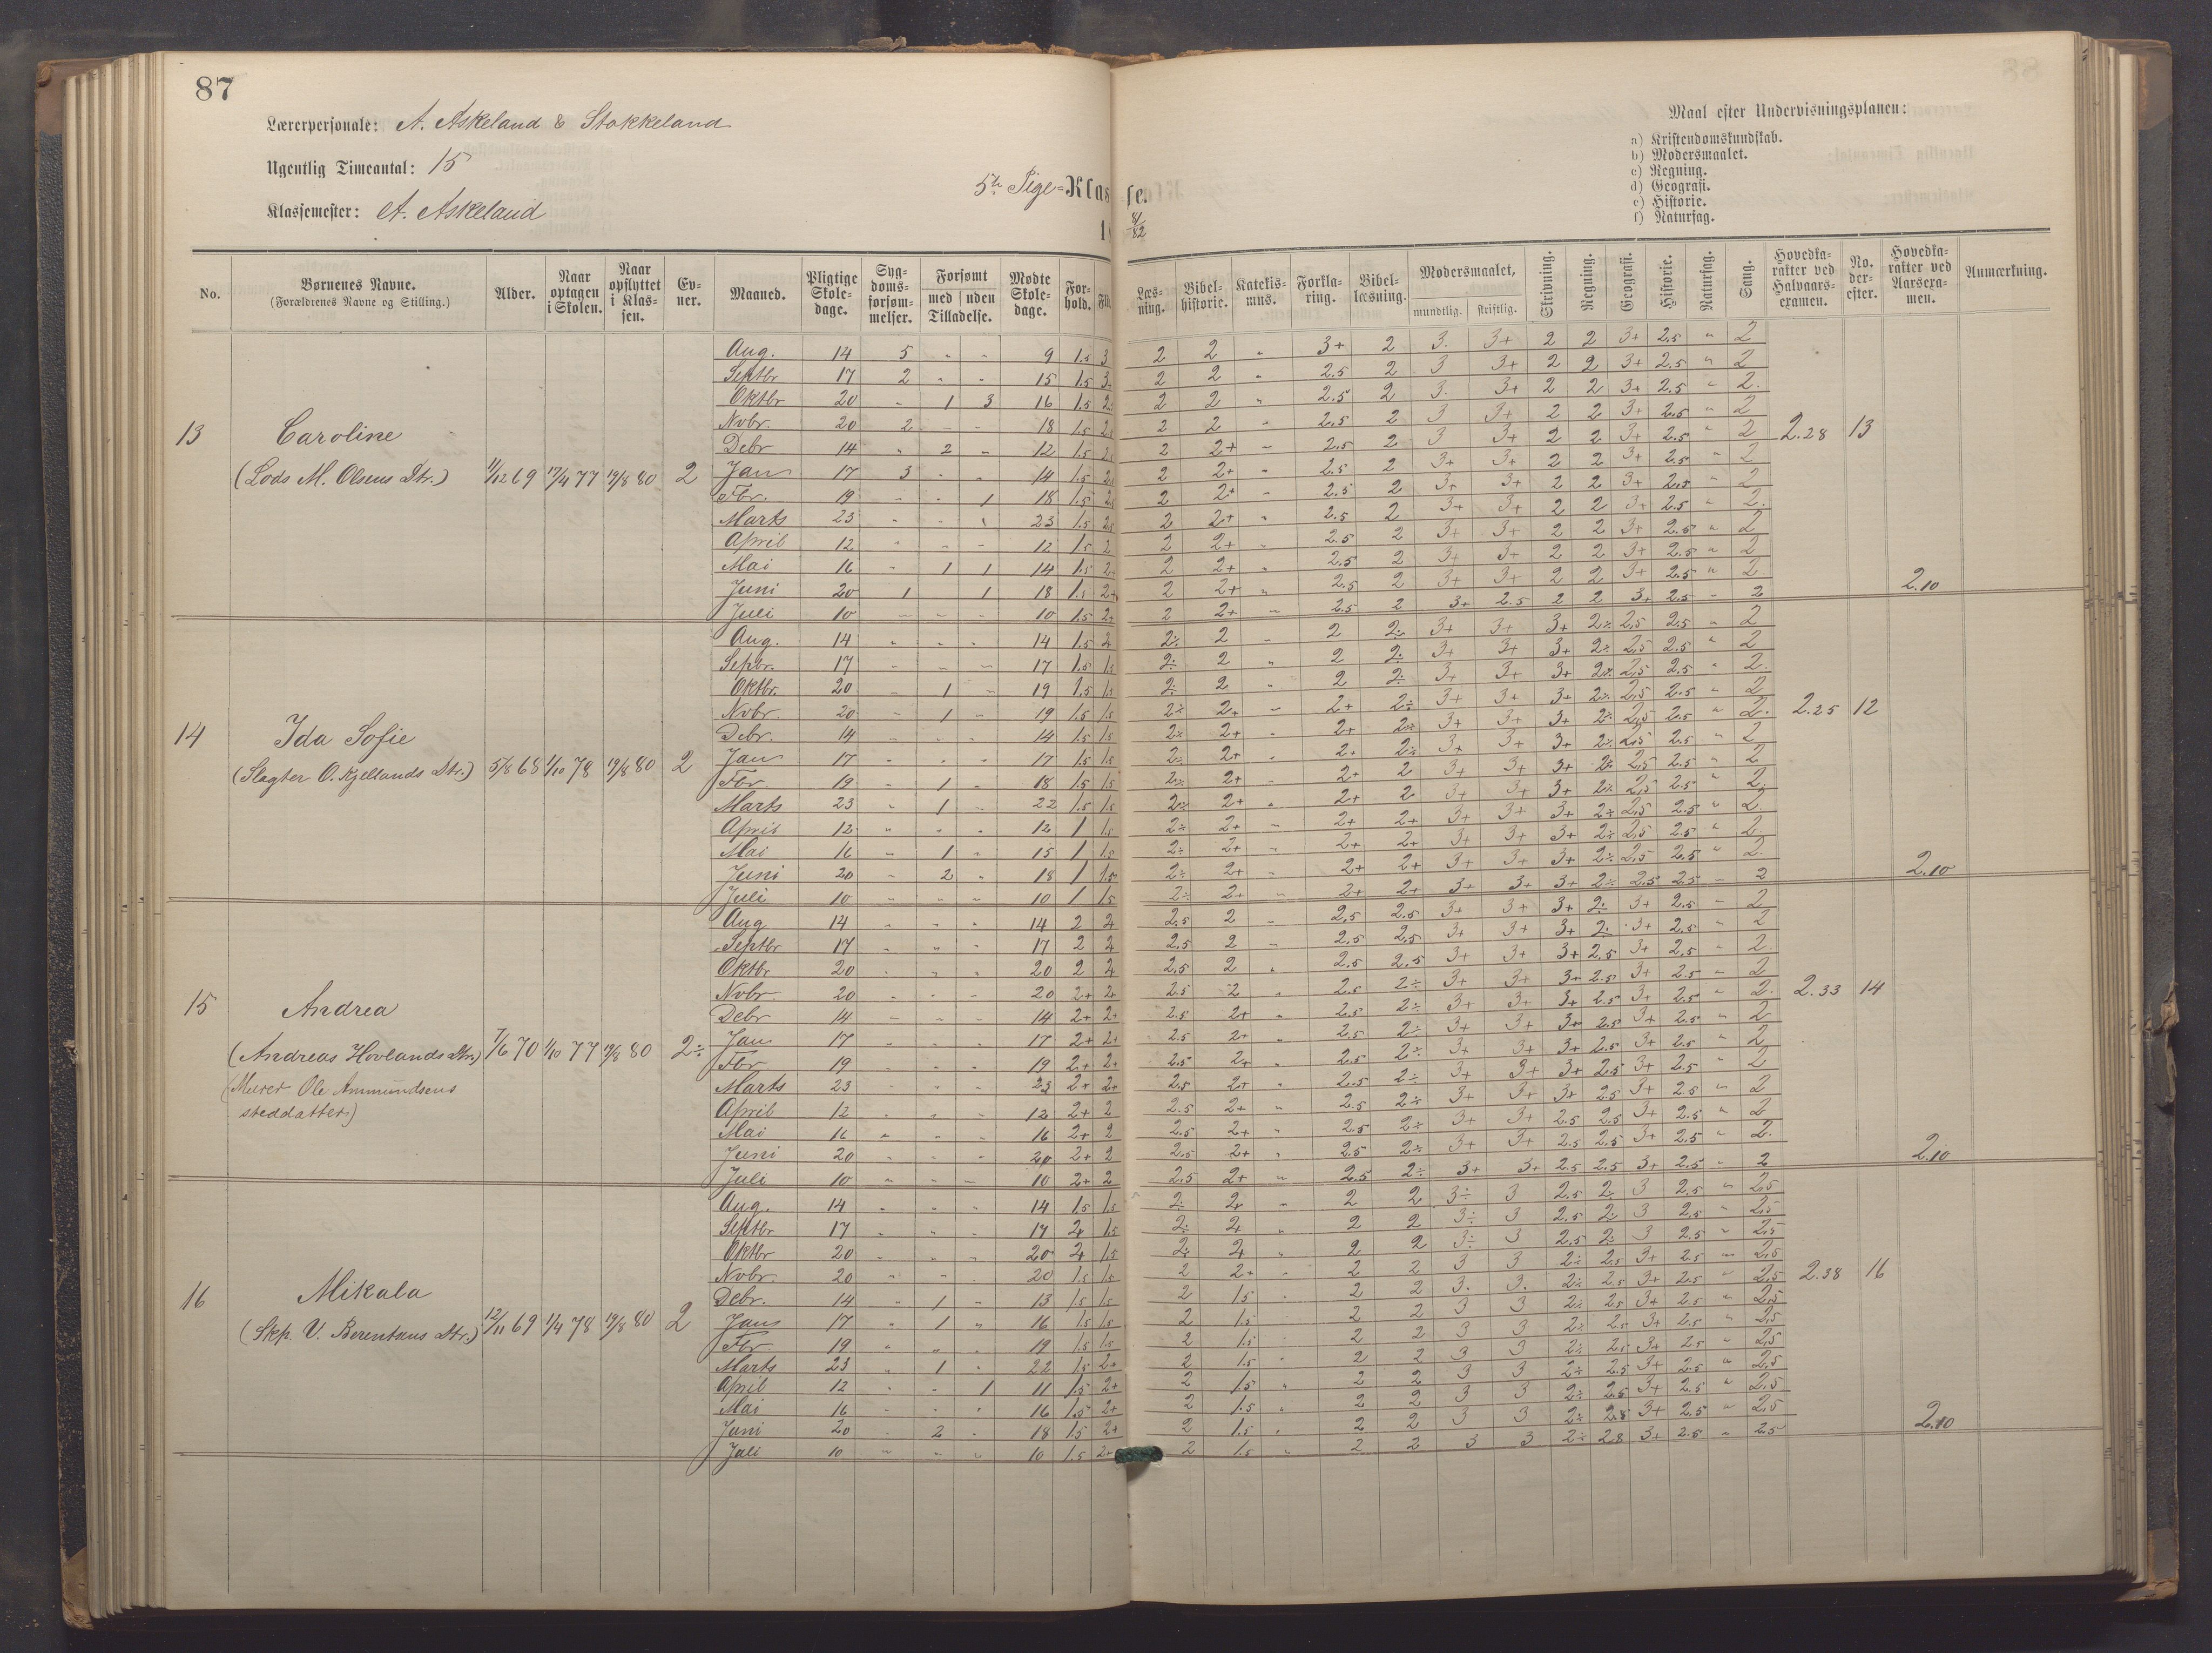 87
Lærerpersonale: A. Askeland & Stokkeland
Ugentlig Timeantal: 15
Klassemester: A. Askeland
5te Pige-Klasse.
81/82
Maal efter Undervisningsplanen:
a) Kristendomskundskab.
b) Modersmaalet.
c) Regning.
d) Geografi.
e) Historie.
f) Naturfag.
No. Børnenes Navne. (Forældrenes Navne og Stilling.) Alder. Naar optagen i Skolen. Naar opflyttet i Klassen. Evner. Maaned. Pligtige Skoledage. Sygdomsforsømmelser. Forsømt med uden Tilladelse. Mødte Skoledage. Forhold. Læsning. Bibelhistorie. Katekismus. Forklaring. Bibellæsning. Modersmaalet, mundtlig. skriftlig. Skrivning. Regning. Geografi. Historie. Naturfag. Sang. Hovedkarakter ved Halvaarsexamen. No. derefter. Hovedkarakter ved Aarsexamen. Anmærkning.
13 Caroline
(Lods M. Olsens Dtr.) 11/12 69 17/4 77 19/8 80 2
Aug. 14 5 " " 9 1.5 3 2 2 " 3+ 2 3. 3+ 2 2 3+ 2.5 " 2
Septbr 17 2 " " 15 1.5 3+ 2 2 " 2.5 2 3 3+ 2 2 3+ 2.5 " 2
Oktbr 20 " 1 3 16 1.5 2 2 " 2.5 2 3. 3+ 2 2 3+ 2.5 " 2.
Novbr. 20 2 " " 18 1.5 2 2 " 2.5 2 3 3+ 2 2 3+ 2.5 " 2
Debr 14 " 2 " 12 1.5 2 2+ " 2.5 2 3 3+ 2 2 3+ 2.5 " 2 2.28 13
Jan 17 3 " " 14 1.5 2 2+ " 2.5 2 3+ 3+ 2 2 3+ 2.5 " 2
Fbr. 19 " " 1 18 1.5 2 2+ " 2.5 2 3+ 3+ 2 2 3+ 2.5 " 2
Marts 23 " " " 23 1.5 2 2+ " 2.5 2 3+ 3+ 2 2 3+ 2.5 " 2.
April 12 " " " 12 1.5 2 2 2+ " 2.5 2 3+ 3+ 2 2 3+ 2.5 " 2
Mai 16 " 1 1 14 1.5 2 2+ " 2.5 2 3+ 3+ 2 2 3+ 2.5 " 2
Juni 20 1 1 18 1.5 2+ 2 2+ " 2.5 2 3+ 3+ 2 2 3+ 2.5 " 2 2.10
Juli 10 " " " 10 1.5 2+ 2 2+ " 2.5 2 3+ 2.5 2 2 3+ 2.5 " 2
14 Ida Sofie
(Slagter O. Kjellands Dtr.) 5/8 68 1/10 78 19/8 80 2
Aug. 14 " " " 14 1.5 2 2÷ 2 " 2 2÷ 3+ 3+ 3+ 2÷ 2.5 2.5 " 2
Septbr. 17 " " " 17 1.5 1.5 2÷ 2 " 2 2÷ 3+ 3+ 3+ 2÷ 2.5 2.5 " 2
Oktbr. 20 " 1 " 19 1.5 1.5 2÷ 2 " 2 2÷ 3+ 3+ 3+ 2÷ 2.5 2.5 " 2.
Novbr. 20 " 1 " 19 1.5 1.5 2÷ 2+ " 2+ 2÷ 3+ 3+ 3+ 2÷ 2.5 2.5 " 2
Debr. 14 " " " 14 1.5 1.5 2÷ 2+ " 2+ 2÷ 3+ 3+ 3+ 2÷ 2.5 2.5 " 2. 2.25 12
Jan 17 " " " 17 1.5 1.5 2÷ 2+ " 2+ 2÷ 3+ 3+ 3+ 2÷ 2.5 2.5 " 2
Fbr. 19 " 1 " 18 1.5 1.5 2÷ 2+ " 2+ 2 3+ 3+ 3+ 2÷ 2.5 2.5 " 2
Marts 23 " 1 " 22 1.5 1.5 2÷ 2+ " 2+ 2 3+ 3+ 3+ 2÷ 2.5 2.5 " 2.
April 12 " " " 12 1 1.5 2÷ 2+ " 2+ 2+ 3+ 3+ 3+ 2÷ 2.5 2.5 " 2.
Mai 16 " 1 " 15 1 1.5 2÷ 2+ " 2+ 2+ 3+ 3+ 3+ 2÷ 2.5 2.5 " 2.
Juni 20 " 2 " 18 1 1.5 2÷ 2+ " 2+ 2+ 3+ 3+ 3+ 2÷ 2.5 2.5 " 2. 2.10
Juli 10 " " " 10 1 1.5 2÷ 2+ " 2+ 2+ 3+ 3+ 3+ 2÷ 2.5 2.5 " 2
15 Andrea
(Andreas Hovlands Dtr.) 7/6 70 1/10 77 19/8 80 2÷
(Murer Ole Ammundsens
steddatter)
Aug 14 " " " 14 2 2 2.5 2 " 2.5 2.5 3+ 3+ 3+ 2÷ 3+ 2.5 " 2
Septbr 17 " " " 17 2 2 2.5 2 " 2.5 2.5 3+ 3+ 3+ 2÷ 3+ 2.5 " 2
Oktbr 20 " " " 20 2 2 2.5 2 " 2.5 2.5 3+ 3+ 3+ 2.5 3+ 2.5 " 2.
Novbr. 20 " " " 20 2+ 2+ 2.5 2 " 2.5 2÷ 3+ 3+ 3+ 2.5 3+ 2.5 " 2
Debr 14 " " " 14 2+ 2+ 2.5 2+ " 2.5 2÷ 3+ 3+ 3+ 2.5 3+ 2.5 " 2. 2.33 14
Jan 17 " " " 17 2+ 2+ 2.5 2+ " 2.5 2÷ 3+ 3+ 3+ 2.5 3+ 2.5 " 2
Fbr 19 " " " 19 2+ 2+ 2.5 2+ " 2.5 2÷ 3+ 3+ 3+ 2.5 3+ 2.5 " 2
Marts 23 " " " 23 2+ 2+ 2.5 2+ " 2.5 2÷ 3+ 3+ 3+ 2.5 3+ 2.5 " 2
April 12 " " " 12 2+ 2 2.5 2+ " 2.5 2÷ 3+ 3+ 3+ 2.5 3+ 2.5 " 2
Mai 16 " " " 16 2+ 2 2.5 2+ " 2.5 2÷ 3+ 3+ 2.5 2.5 3+ 2.5 " 2
Juni 20 " " " 20 2+ 2 2.5 2+ " 2.5 2÷ 3+ 3+ 2.5 2.5 3+ 2.5 " 2. 2.10
Juli 10 " " " 10 2+ 2 2.5 2+ " 2.5 2÷ 3+ 3+ 2.5 2.5 3+ 2.5 " 2
16 Mikala
(Skp. V. Berentsens Dtr.) 12/11 69 1/4 78 19/8 80 2
Aug. 14 " " " 14 1.5 1.5 2÷ 2+ " 2 2 3÷ 3 2.5 2÷ 3 2.5 " 2.5
Septbr 17 " " " 17 2 1.5 2÷ 2 " 2 2 3÷ 3 2.5 2÷ 3 2.5 " 2.5
Oktbr 20 " " " 20 2 1.5 2÷ 2 " 2 2 3÷ 3 2.5 2÷ 3 2.5 " 2.5
Novbr. 20 " " " 20 1.5 1.5 2 2+ " 2 2 3 3 2÷ 2.5 3+ 2.5 " 2.5
Debr. 14 " 1 " 13 1.5 1.5 2 1.5 " 2 2 3. 3. 2÷ 2.5 3+ 2.5 " 2.5 2.38 16
Jan 17 " 1 " 16 1.5 1.5 2 1.5 " 2 2 3 3 2÷ 2.5 3+ 2.5 " 2.5
Fbr. 19 " " " 19 1.5 1.5 2 1.5 " 2 2 3 3 2÷ 2.5 3+ 2.5 " 2.5
Marts 23 " 1 " 22 1.5 2+ 2 1.5 " 2 2 3 3 2÷ 2.5 3+ 2.5 " 2.5
April 12 " " 1 11 1.5 2+ 2 1.5 " 2 2 3 3 2÷ 2.5 3+ 2.5 " 2.5
Mai 16 " " " 16 1.5 2+ 2 1.5 " 2 2 3 3 2÷ 2.5 3+ 2.5 " 2.5
Juni 20 " 2 " 18 1.5 2+ 2 1.5 " 2 2 3 3 2÷ 2.8 3+ 2.5 " 2.5 2.10
Juli 10 " " " 10 1.5 2+ 2 1.5 " 2 2 3 3 2÷ 2.8 3+ 2.5 " 2.5